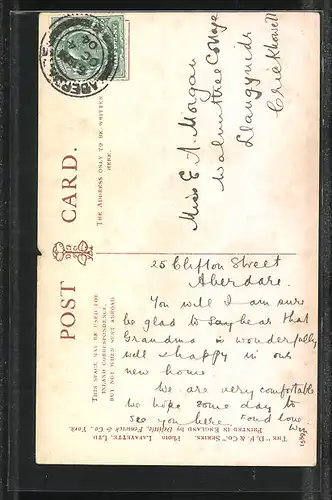 POST CARD.
THIS SPACE MAY BE USED FOR
INLAND CORRESPONDENCE,
BUT NOT WHEN SENT ABROAD
THE ADDRESS ONLY TO BE WRITTEN
HERE.
ABERD
Miss E. A. Morgan
Walnuttree Cottage
Llangynidr
Crickhowell
25 Clifton Street
Aberdare.
You will I am sure
be glad to hear that
Grandma is wonderfully
well & happy in our
new home.
We are very comfortable
We hope some day to
see you here Fond love.
THE "D. F. & Co." SERIES. PHOTO LAFAYETTE, LTD
PRINTED IN ENGLAND BY Delittle, Fenwick & Co., York.